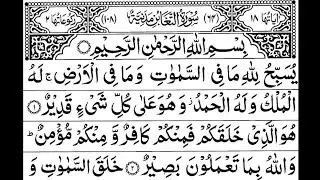 اٰيَاتُهَا ١٨ (٦٤) سُوْرَةُ التَّغَابُنِ مَدَنِيَّةٌ (١٠٨) رُكُوْعَاتُهَا ٢
بِسْمِ اللّٰهِ الرَّحْمٰنِ الرَّحِيْمِ
يُسَبِّحُ لِلّٰهِ مَا فِي السَّمٰوٰتِ وَمَا فِي الْاَرْضِ ۚ لَهُ
الْمُلْكُ وَلَهُ الْحَمْدُ ؗ وَهُوَ عَلٰى كُلِّ شَيْءٍ قَدِيْرٌ ۝١
هُوَ الَّذِيْ خَلَقَكُمْ فَمِنْكُمْ كَافِرٌ وَّمِنْكُمْ مُّؤْمِنٌ ؕ
وَاللّٰهُ بِمَا تَعْمَلُوْنَ بَصِيْرٌ ۝٢ خَلَقَ السَّمٰوٰتِ وَ